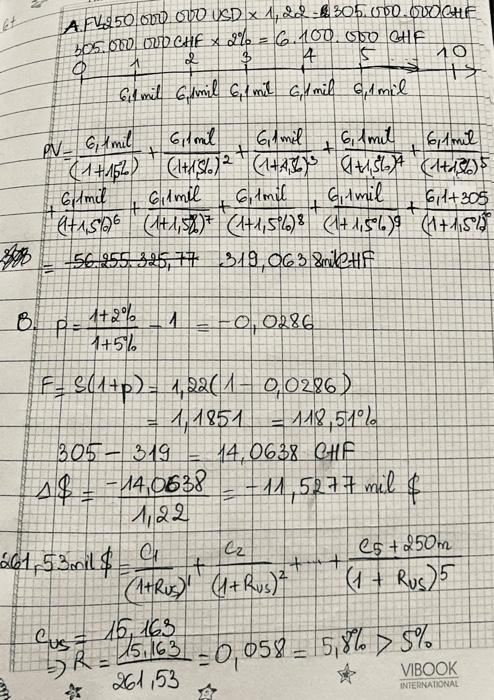 A. FV250.000.000 USD × 1,22 = 305.000.000CHF
305.000.000CHF × 2% = 6.100.000 CHF
0 1 2 3 4 5 10
6,1mil 6,1mil 6,1mil 6,1mil 6,1mil
PV = 6,1mil/(1+1,5%) + 6,1mil/(1+1,5%)² + 6,1mil/(1+1,5%)³ + 6,1mil/(1+1,5%)⁴ + 6,1mil/(1+1,5%)⁵
+ 6,1mil/(1+1,5%)⁶ + 6,1mil/(1+1,5%)⁷ + 6,1mil/(1+1,5%)⁸ + 6,1mil/(1+1,5%)⁹ + 6,1+305/(1+1,5%)¹⁰
= 56.255.325,77 319,0638milCHF
B. p = 1+2%/1+5% - 1 = -0,0286
F = S(1+p) = 1,22(1 - 0,0286)
= 1,1851 = 118,51%
305 - 319 = 14,0638 CHF
Δ$ = -14,0638/1,22 = -11,5277 mil $
261,53mil$ = C1/(1+RUS)¹ + C2/(1+RUS)² + ... + C5+250m/(1+RUS)⁵
CUS = 15,163
⇒ R = 15,163/261,53 = 0,058 = 5,8% > 5%
VIBOOK
INTERNATIONAL